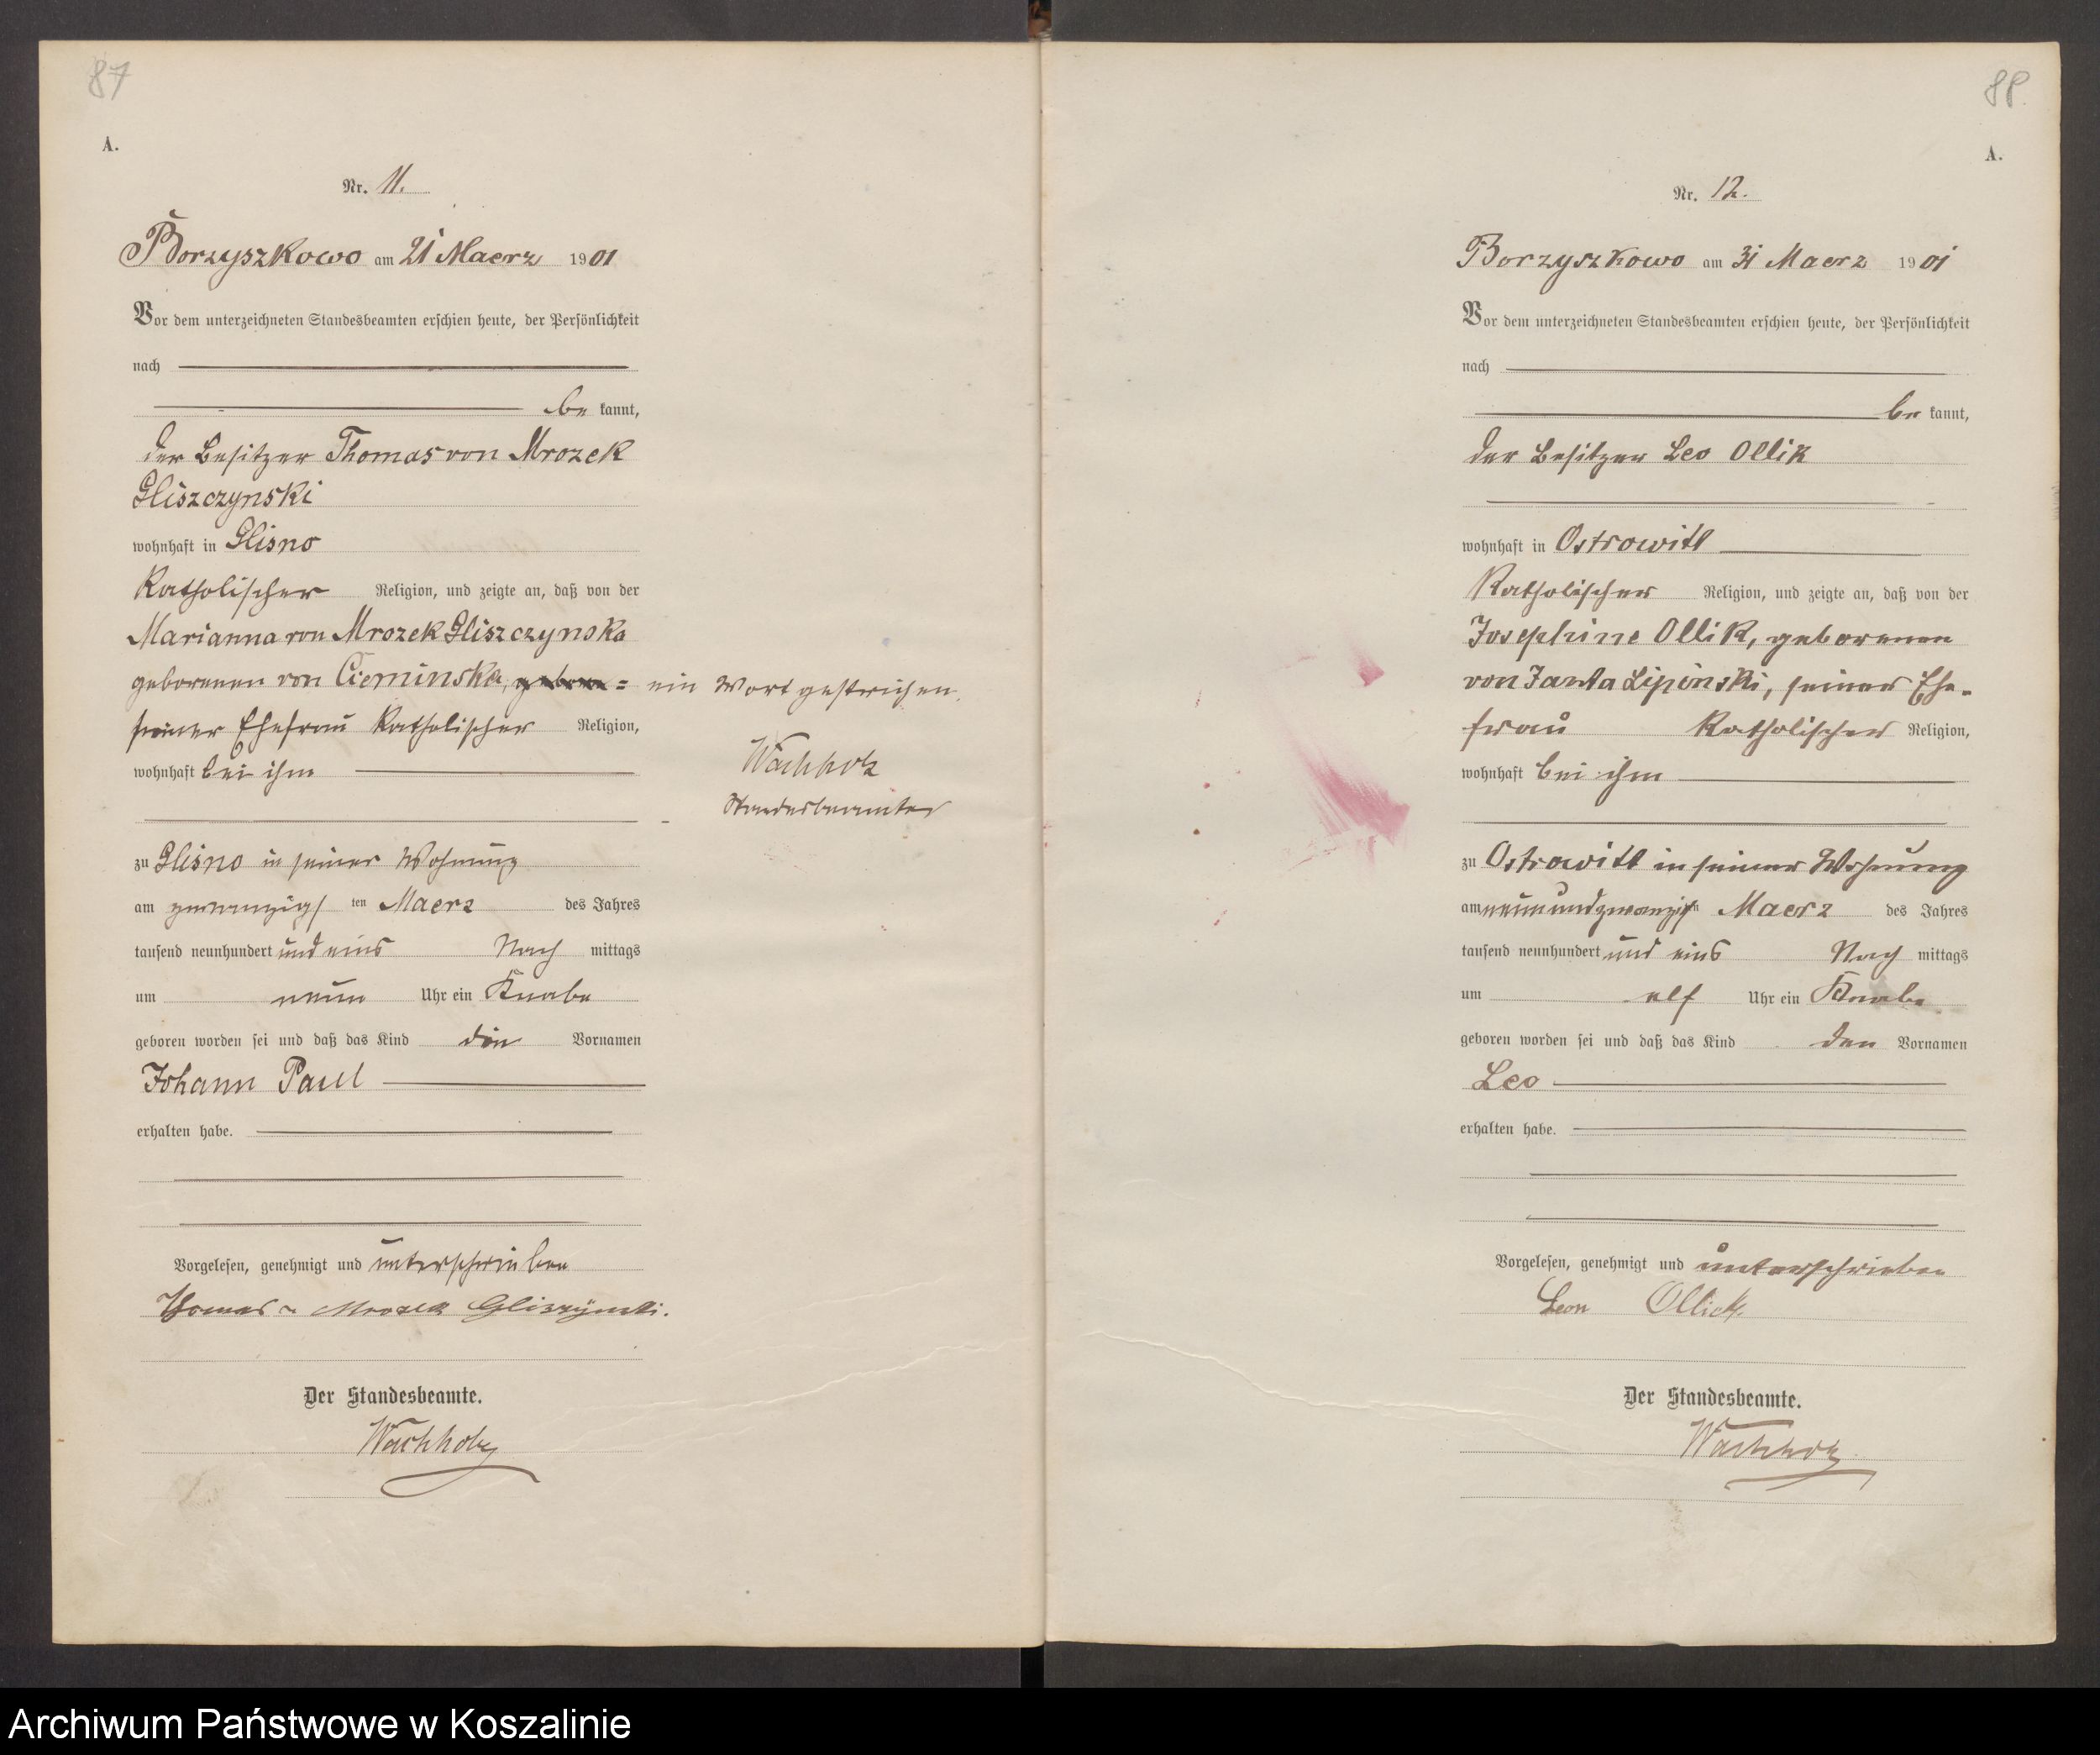 87
A.
Nr. 11.
Borzyszkowo am 21 Maerz 1901
Vor dem unterzeichneten Standesbeamten erschien heute, der Persönlichkeit
nach
be kannt,
der Besitzer Thomas von Mrozek
Gliszczynski
wohnhaft in Glisno
Katholischer Religion, und zeigte an, daß von der
Marianna von Mrozek Gliszczynska
geborenen von Cieminska, gebore= ein Wort gestrichen.
seiner Ehefrau Katholischer Religion,
Wachholz
wohnhaft bei ihm
Standesbeamter
zu Glisno in seiner Wohnung
am zwanzigs ten Maerz des Jahres
tausend neunhundert und eins Nach mittags
um neun Uhr ein Knabe
geboren worden sei und daß das Kind die Vornamen
Johann Paul
erhalten habe.
Vorgelesen, genehmigt und unterschrieben
Thomas v Mrozek Gliszynski.
Der Standesbeamte.
Wachholz
88
A.
Nr. 12.
Borzyszkowo am 31 Maerz 1901
Vor dem unterzeichneten Standesbeamten erschien heute, der Persönlichkeit
nach
be kannt,
der Besitzer Leo Ollik
wohnhaft in Ostrowitt
Katholischer Religion, und zeigte an, daß von der
Josephine Ollik, geborenen
von Janta Lipinski, seiner Ehe-
frau Katholischer Religion,
wohnhaft bei ihm
zu Ostrowitt in seiner Wohnung
am neunundzwanzigsten Maerz des Jahres
tausend neunhundert und eins Nach mittags
um elf Uhr ein Knabe
geboren worden sei und daß das Kind den Vornamen
Leo
erhalten habe.
Vorgelesen, genehmigt und unterschrieben
Leon Ollick.
Der Standesbeamte.
Wachholz
Archiwum Państwowe w Koszalinie